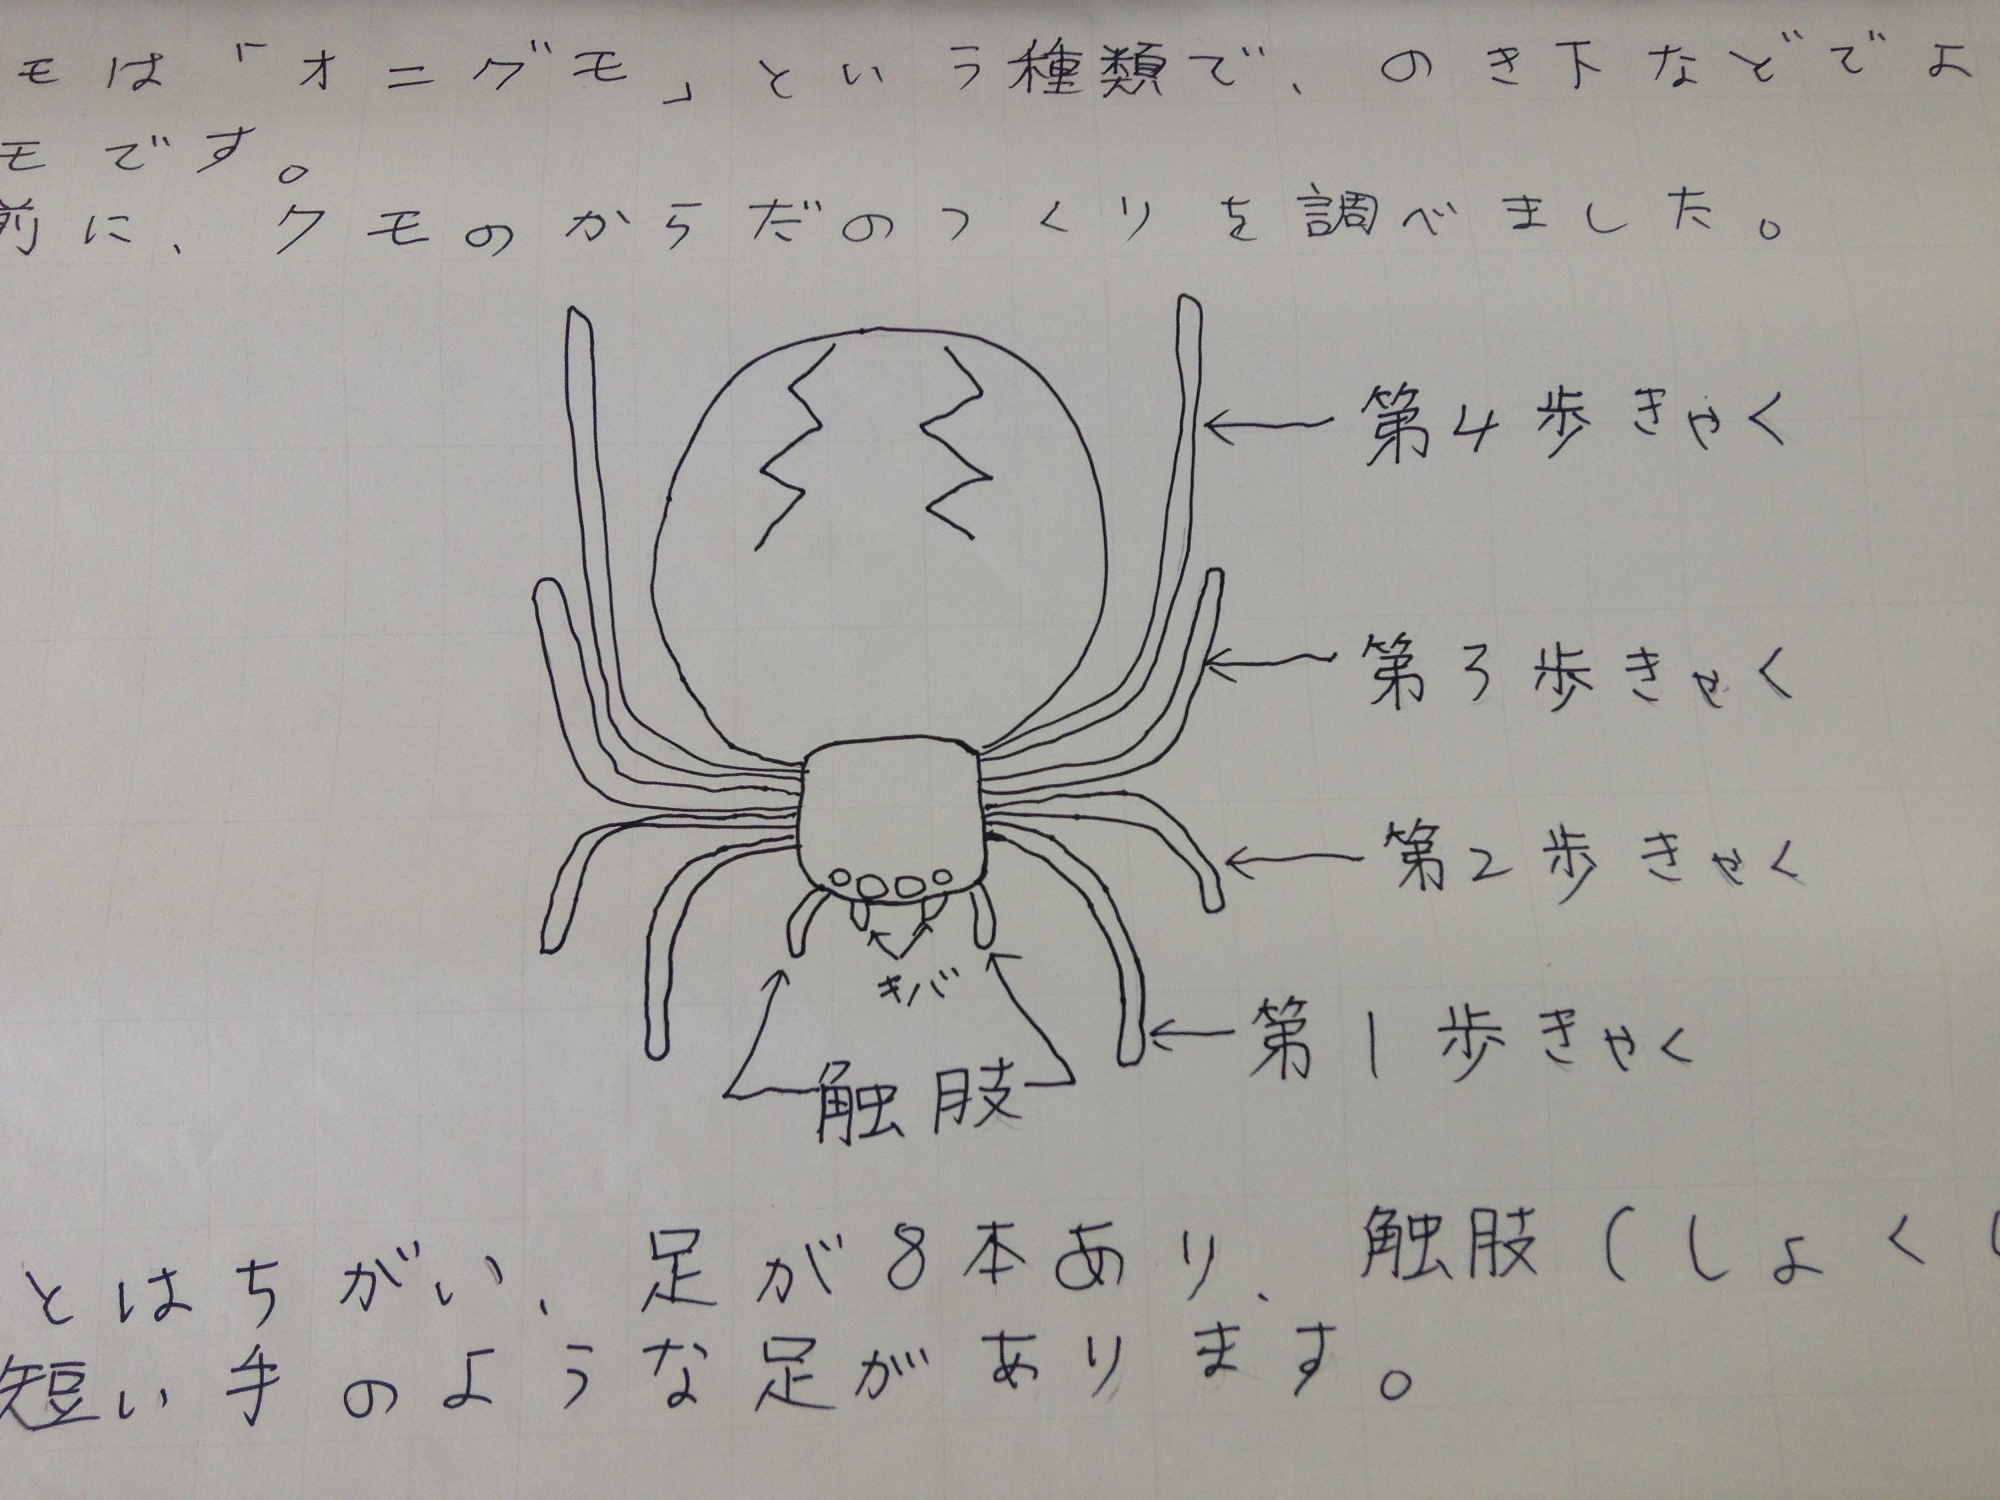 モは「オニグモ」という種類で、のき下などでよ
モです。
前に、クモのからだのつくりを調べました。
第4歩きゃく
第3歩きゃく
第2歩きゃく
キバ
第1歩きゃく
触肢
とはちがい、足が8本あり、触肢(しょくし
短い手のような足があります。